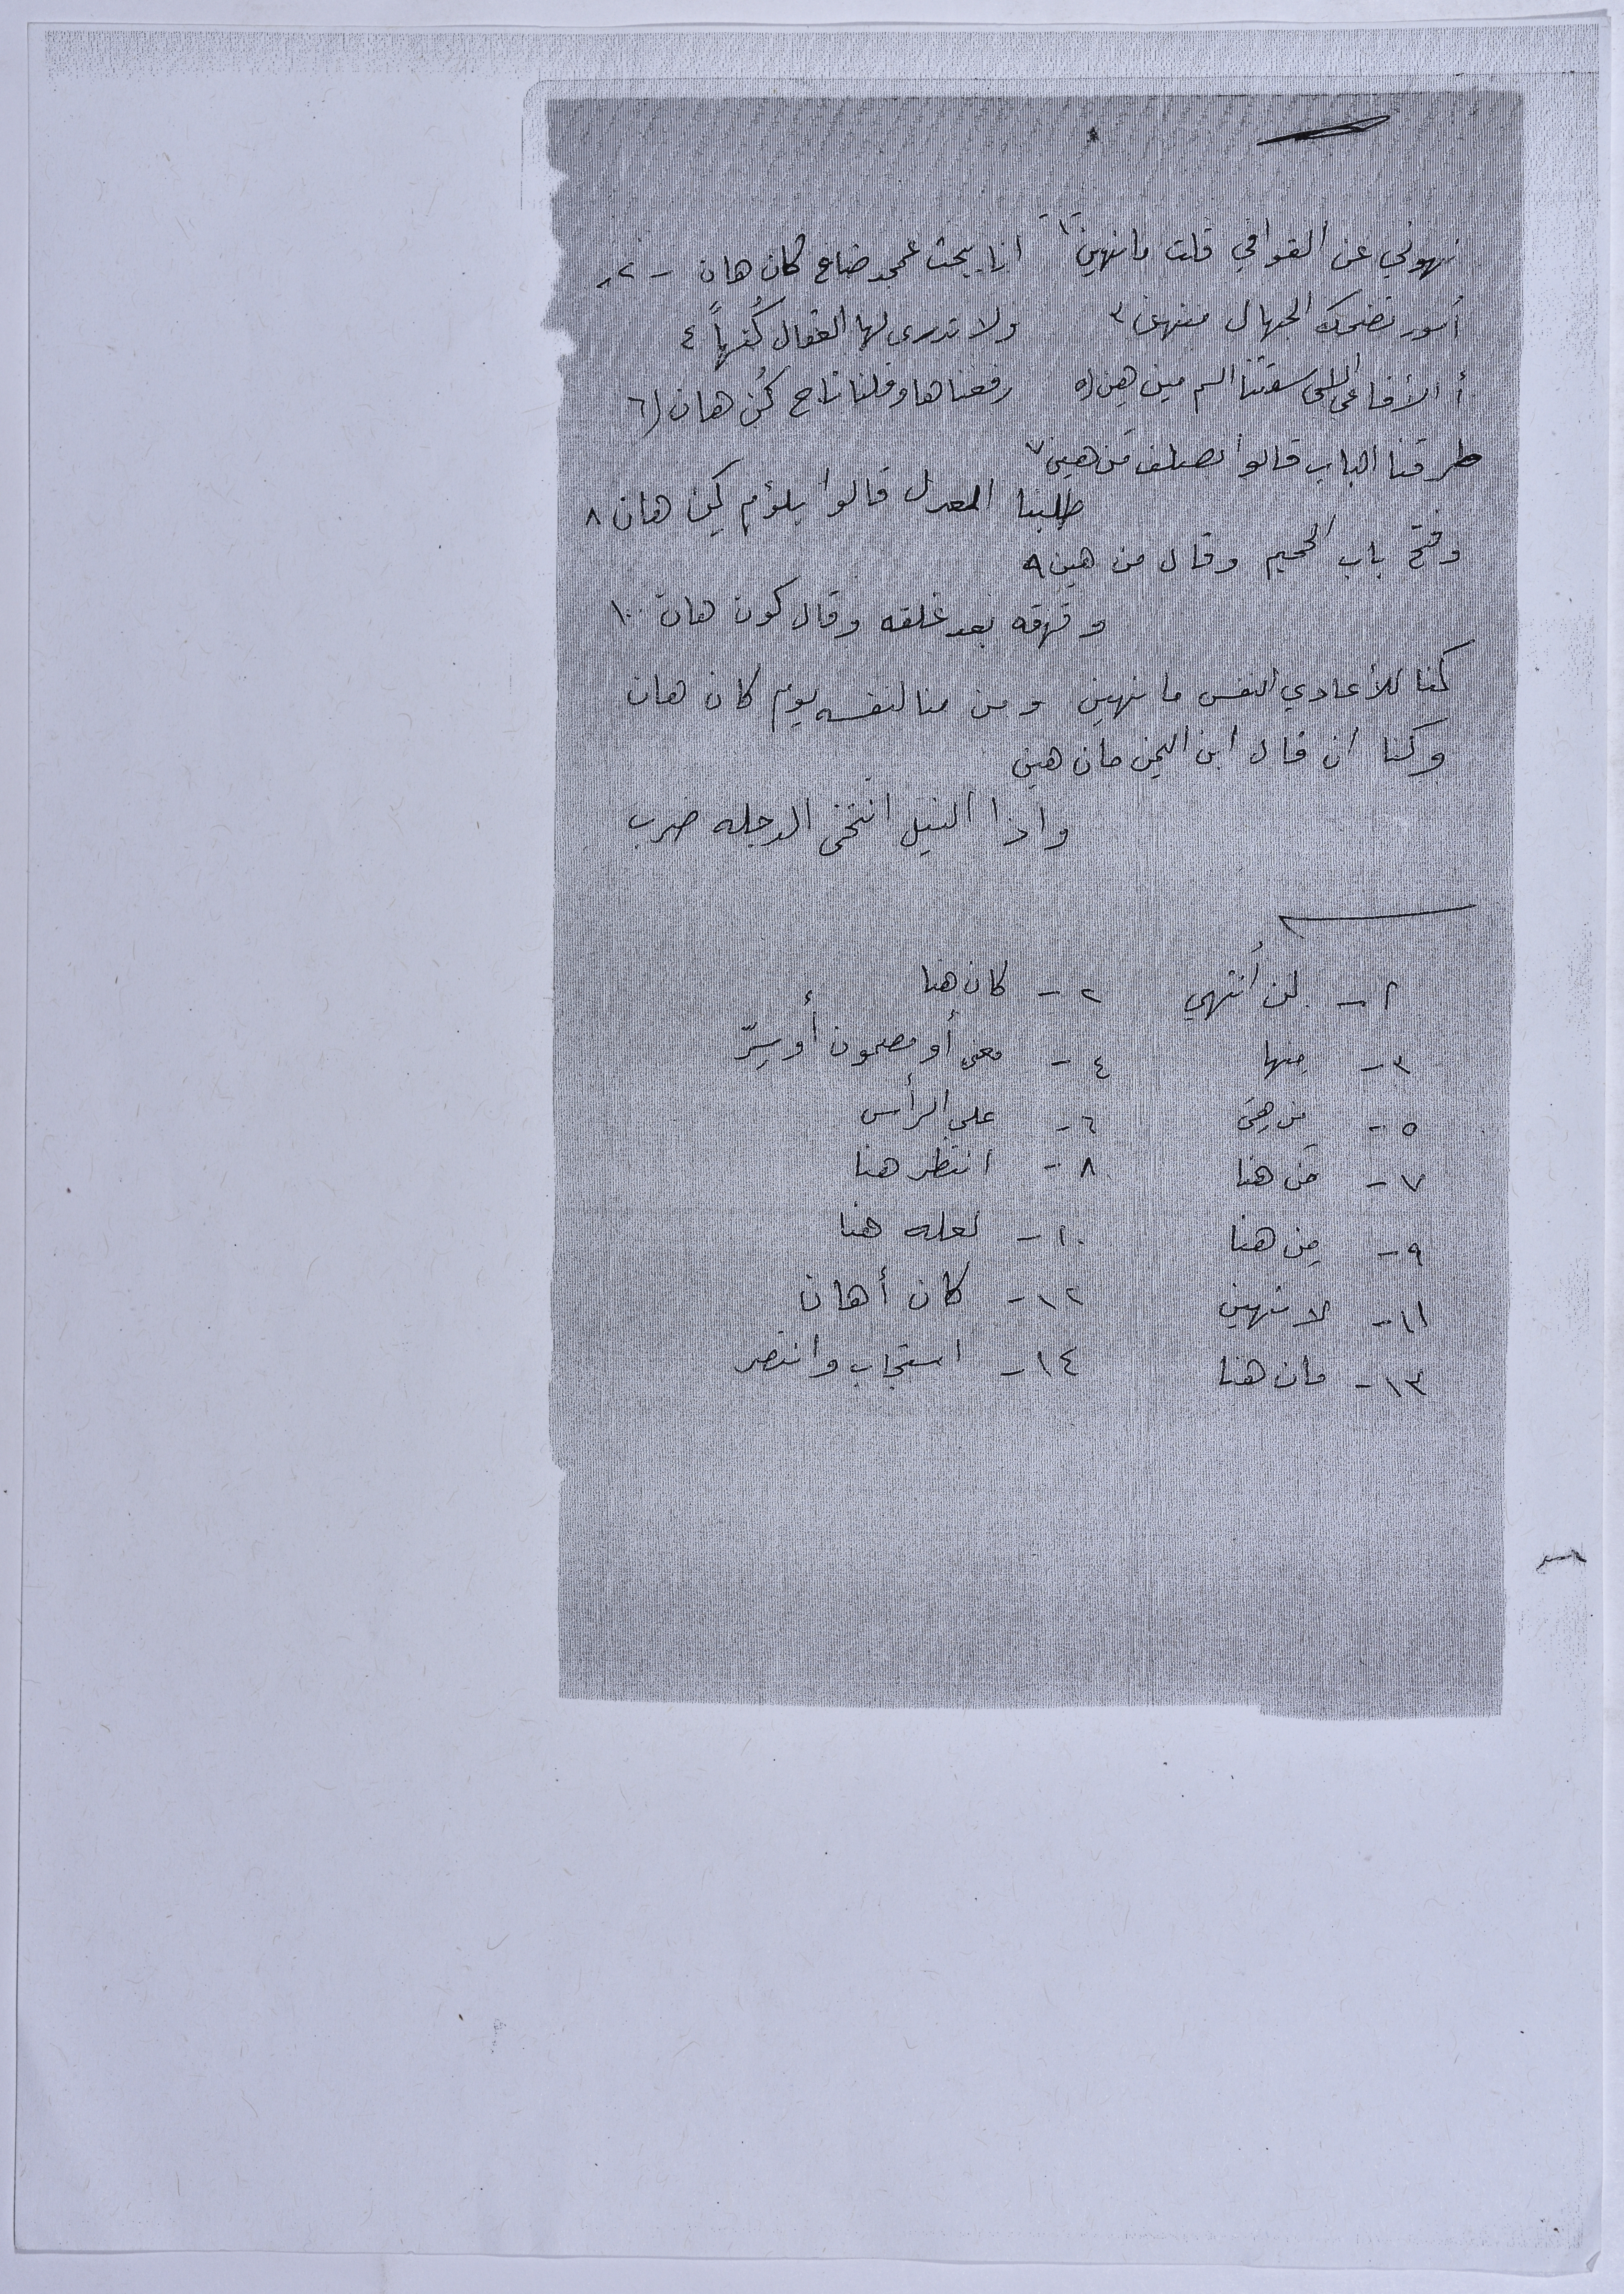 نهوني عن القوافي قلت مانهين ١ انا بحث عمجد ضاع كان هان - ٢
أمور تضحك الجهال منهن ٣ ولا تدري لها العقال كُنهاً ٤
أ الأفاعي اللي سقتنا السم مين هِن (٥ رفعناها وقلنا تاج كُن هان (٦
طرقنا الباب قالوا نصطف مَن هين ٧
طلبنا العدل قالوا بلؤم كِن هان ٨
وفتح باب الجحيم وقال من هين ٩
وقهقه بعد غلقه وقال كون هان ١٠
كنا للأعادي النفس ما نهين ومن منا لنفسه يوم كان هان
وكنا ان قال ابن اليمن مان هين
واذا النيل انتخى الدجله ضرب
١ - لن أنتهي ٢ - كان هنا
٣ - منها ٤ - معنى أو مضمون أو سِرّ
٥ - مَن هِنَ ٦ - على الرأس
٧ - مَن هنا ٨ - انتظر هنا
٩ - مِن هنا ١٠ - لعله هنا
١١ - لا نهين ١٢ - كان أهان
١٣ - مان هنا ١٤ - استجاب وانتصر